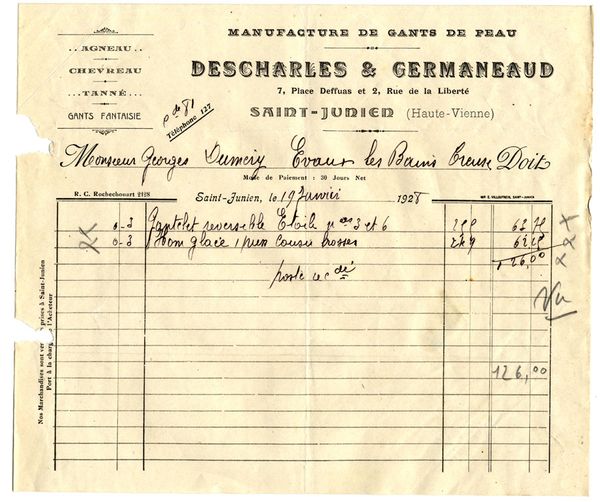 MANUFACTURE DE GANTS DE PEAU
..AGNEAU..
CHEVREAU
...TANNÉ...
GANTS FANTAISIE
DESCHARLES & GERMANEAUD
7, Place Deffuas et 2, Rue de la Liberté
SAINT-JUNIEN (Haute-Vienne)
Téléphone 127
Monsieur Georges Dumery Evaux les Bains Creuse Doit
Mode de Paiement : 30 Jours Net
R. C. Rochechouart 2128
Saint-Junien, le 19 Janvier 1928
0-3 Gantelet reversible Etoile nos 3 et 6
0-3 Hom glacé 1 press cousu brosser
126,00
poste rec dé
Vu
126,00
Nos Marchandises sont prises à Saint-Junien
Port à la charge de l'Acheteur